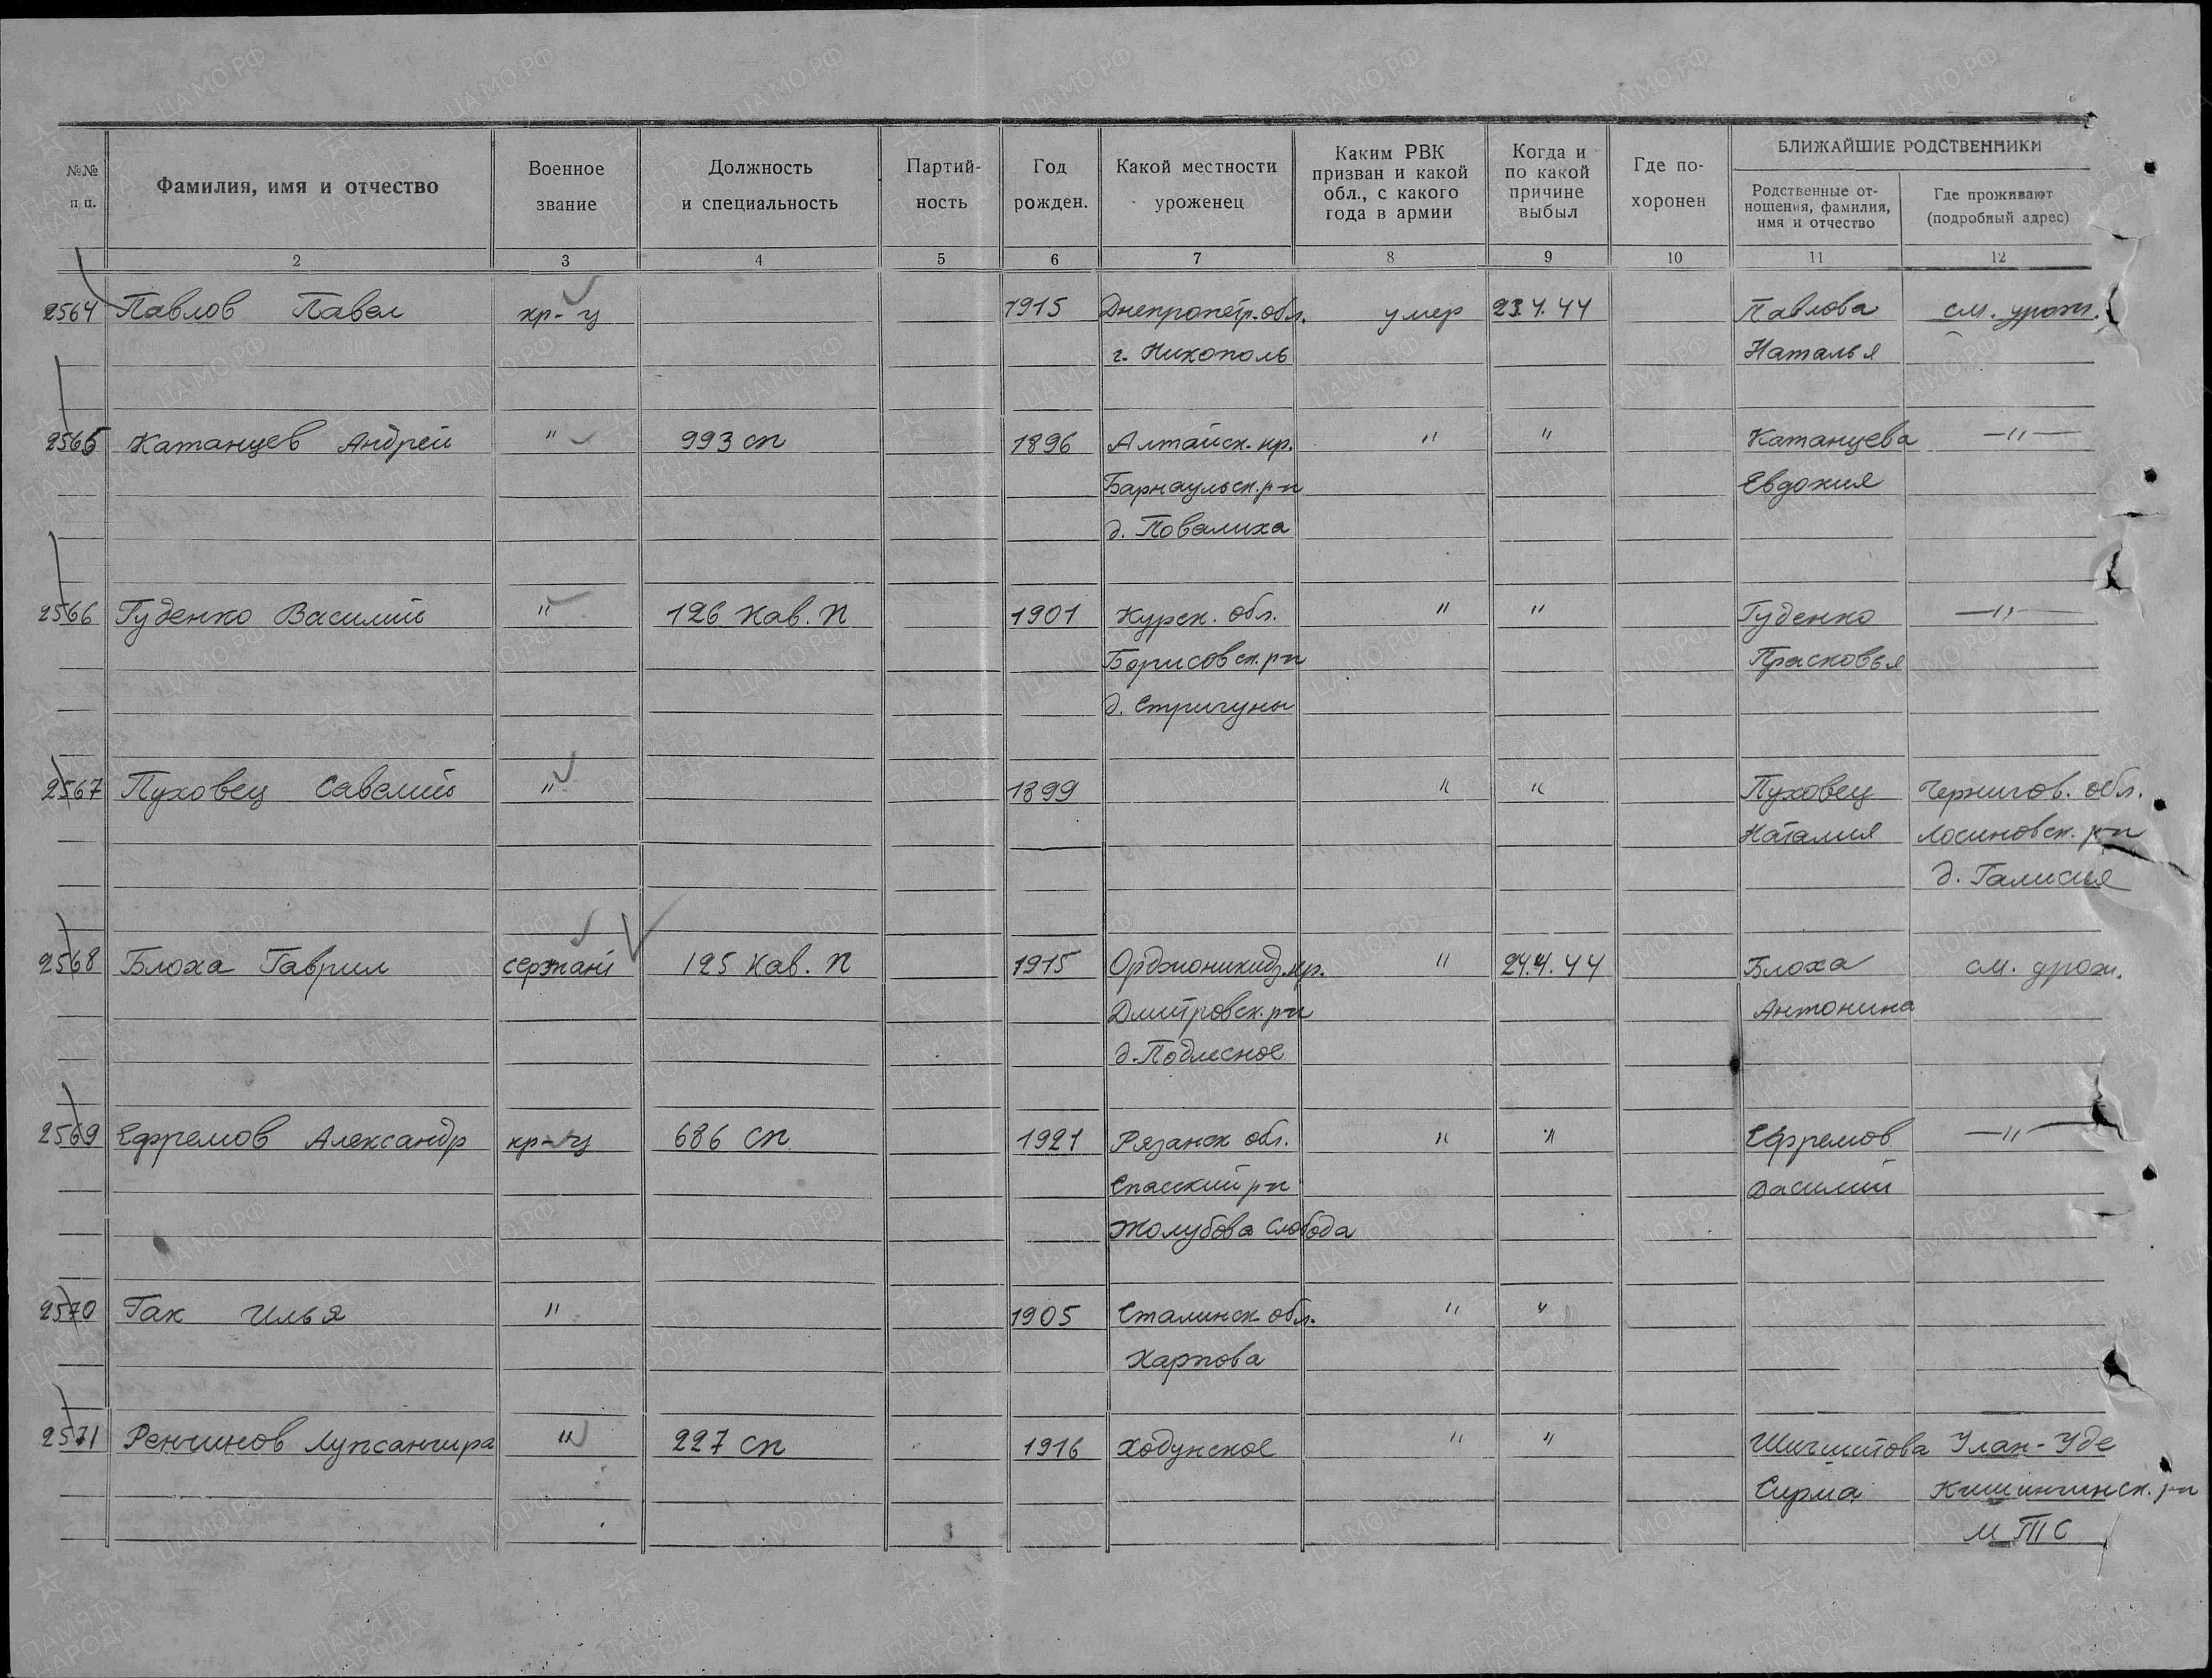 №№ п. п.
Фамилия, имя и отчество
Военное звание
Должность и специальность
Партий-ность
Год рожден.
Какой местности уроженец
Каким РВК призван и какой обл., с какого года в армии
Когда и по какой причине выбыл
Где по-хоронен
БЛИЖАЙШИЕ РОДСТВЕННИКИ
Родственные от-ношения, фамилия, имя и отчество
Где проживают (подробный адрес)
2 3 4 5 6 7 8 9 10 11 12
2564 Павлов Павел кр-ц 1915 Днепропетр. обл. умер 23.4.44 Павлова см. урож.
г. Никополь Наталья
2565 Катанцев Андрей " 993 сп 1896 Алтайск. кр. " " Катанцева —"—
Барнаульск. р-н Евдокия
д. Повалиха
2566 Гуденко Василий " 126 кав. п 1901 Курск. обл. " " Гуденко —"—
Борисовск. р-н Прасковья
д. Стригуны
2567 Пуховец Савелий " 1899 " " Пуховец Чернигов. обл.
Наталия Лосиновск. р-н
д. Галиция
2568 Блоха Гаврил сержант 125 кав. п 1915 Орджоникидз. кр. " 24.4.44 Блоха см. урож.
Дмитровск. р-н Антонина
д. Подлесное
2569 Ефремов Александр кр-ц 686 сп 1921 Рязанск обл. " " Ефремов —"—
Спасский р-н Василий
Жолубова Слобода
2570 Гак Илья " 1905 Сталинск. обл. " "
Харпова
2571 Ренчинов Лупсанчира " 227 сп 1916 Ходунское " " Шигшитова Улан-Уде
Сирма Кишингинск. р-н
МТС